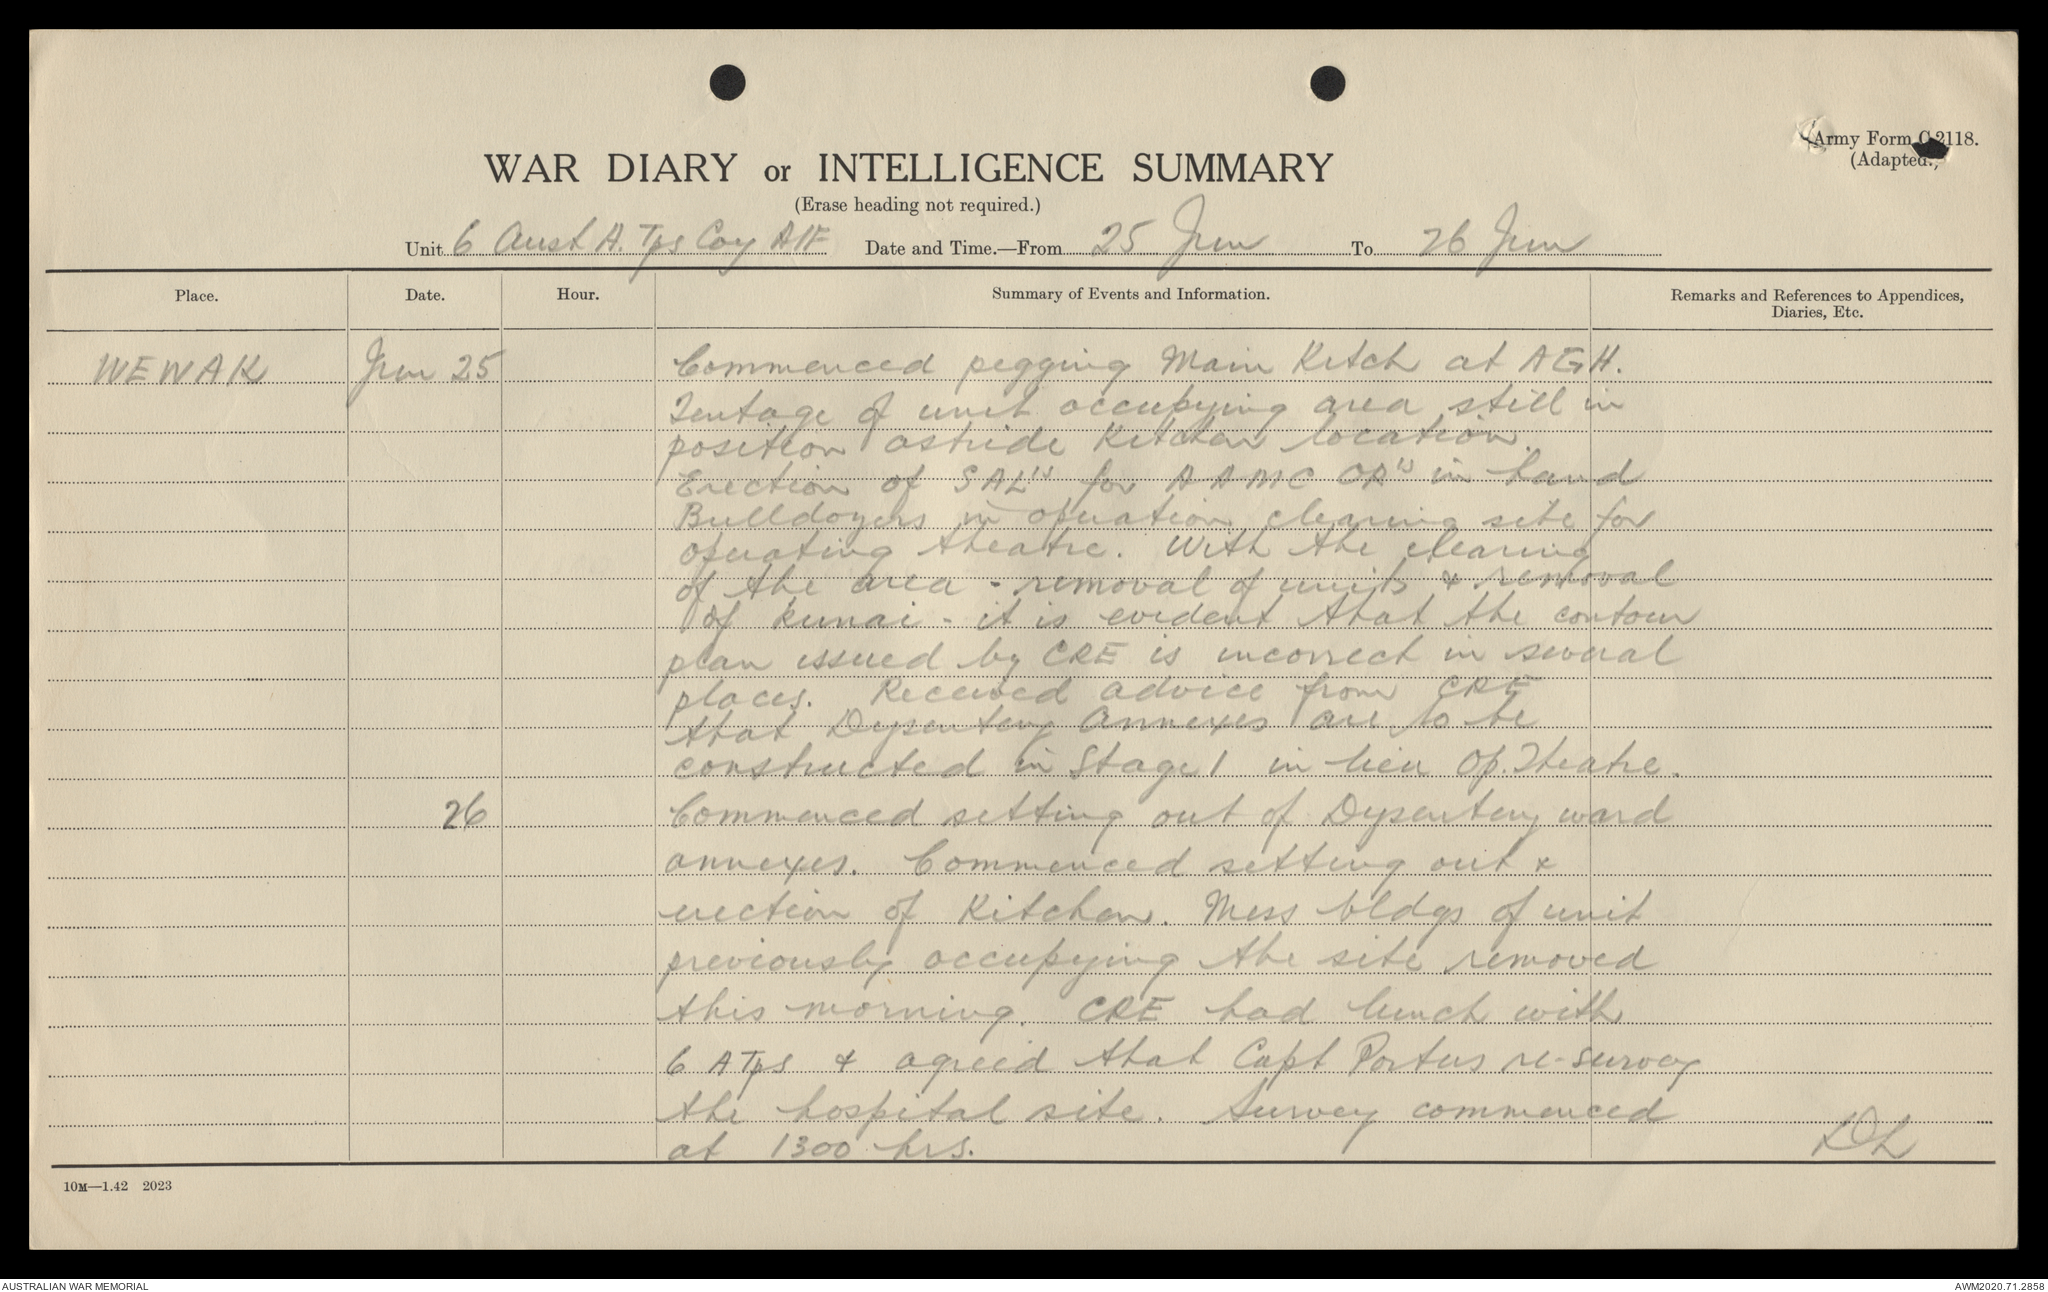 Army Form C.2118.
(Adapted.)
WAR DIARY or INTELLIGENCE SUMMARY
(Erase heading not required.)
Unit 6 Aust A. Tps Coy AIF Date and Time.—From 25 Jun To 26 Jun
Place. Date. Hour. Summary of Events and Information. Remarks and References to Appendices, Diaries, Etc.
WEWAK Jun 25 Commenced pegging Main Kitch at AGH.
Tentage of unit occupying area still in
position astride Kitchen location.
Erection of SAL's for AAMC OR's in hand
Bulldozers in operation clearing site for
operating theatre. With the clearing
of the area - removal of units & removal
of kunai - it is evident that the contour
plan issued by CRE is incorrect in several
places. Received advice from CRE
that Dysentery Annexes are to be
constructed in Stage 1 in lieu Op. Theatre.
26 Commenced setting out of Dysentery ward
annexes. Commenced setting out &
erection of Kitchen. Mess bldgs of unit
previously occupying the site removed
this morning. CRE had lunch with
6 A Tps & agreed that Capt Portus re-survey
the hospital site. Survey commenced
at 1300 hrs.
DL
10M—1.42 2023
AUSTRALIAN WAR MEMORIAL
AWM2020.71.2858